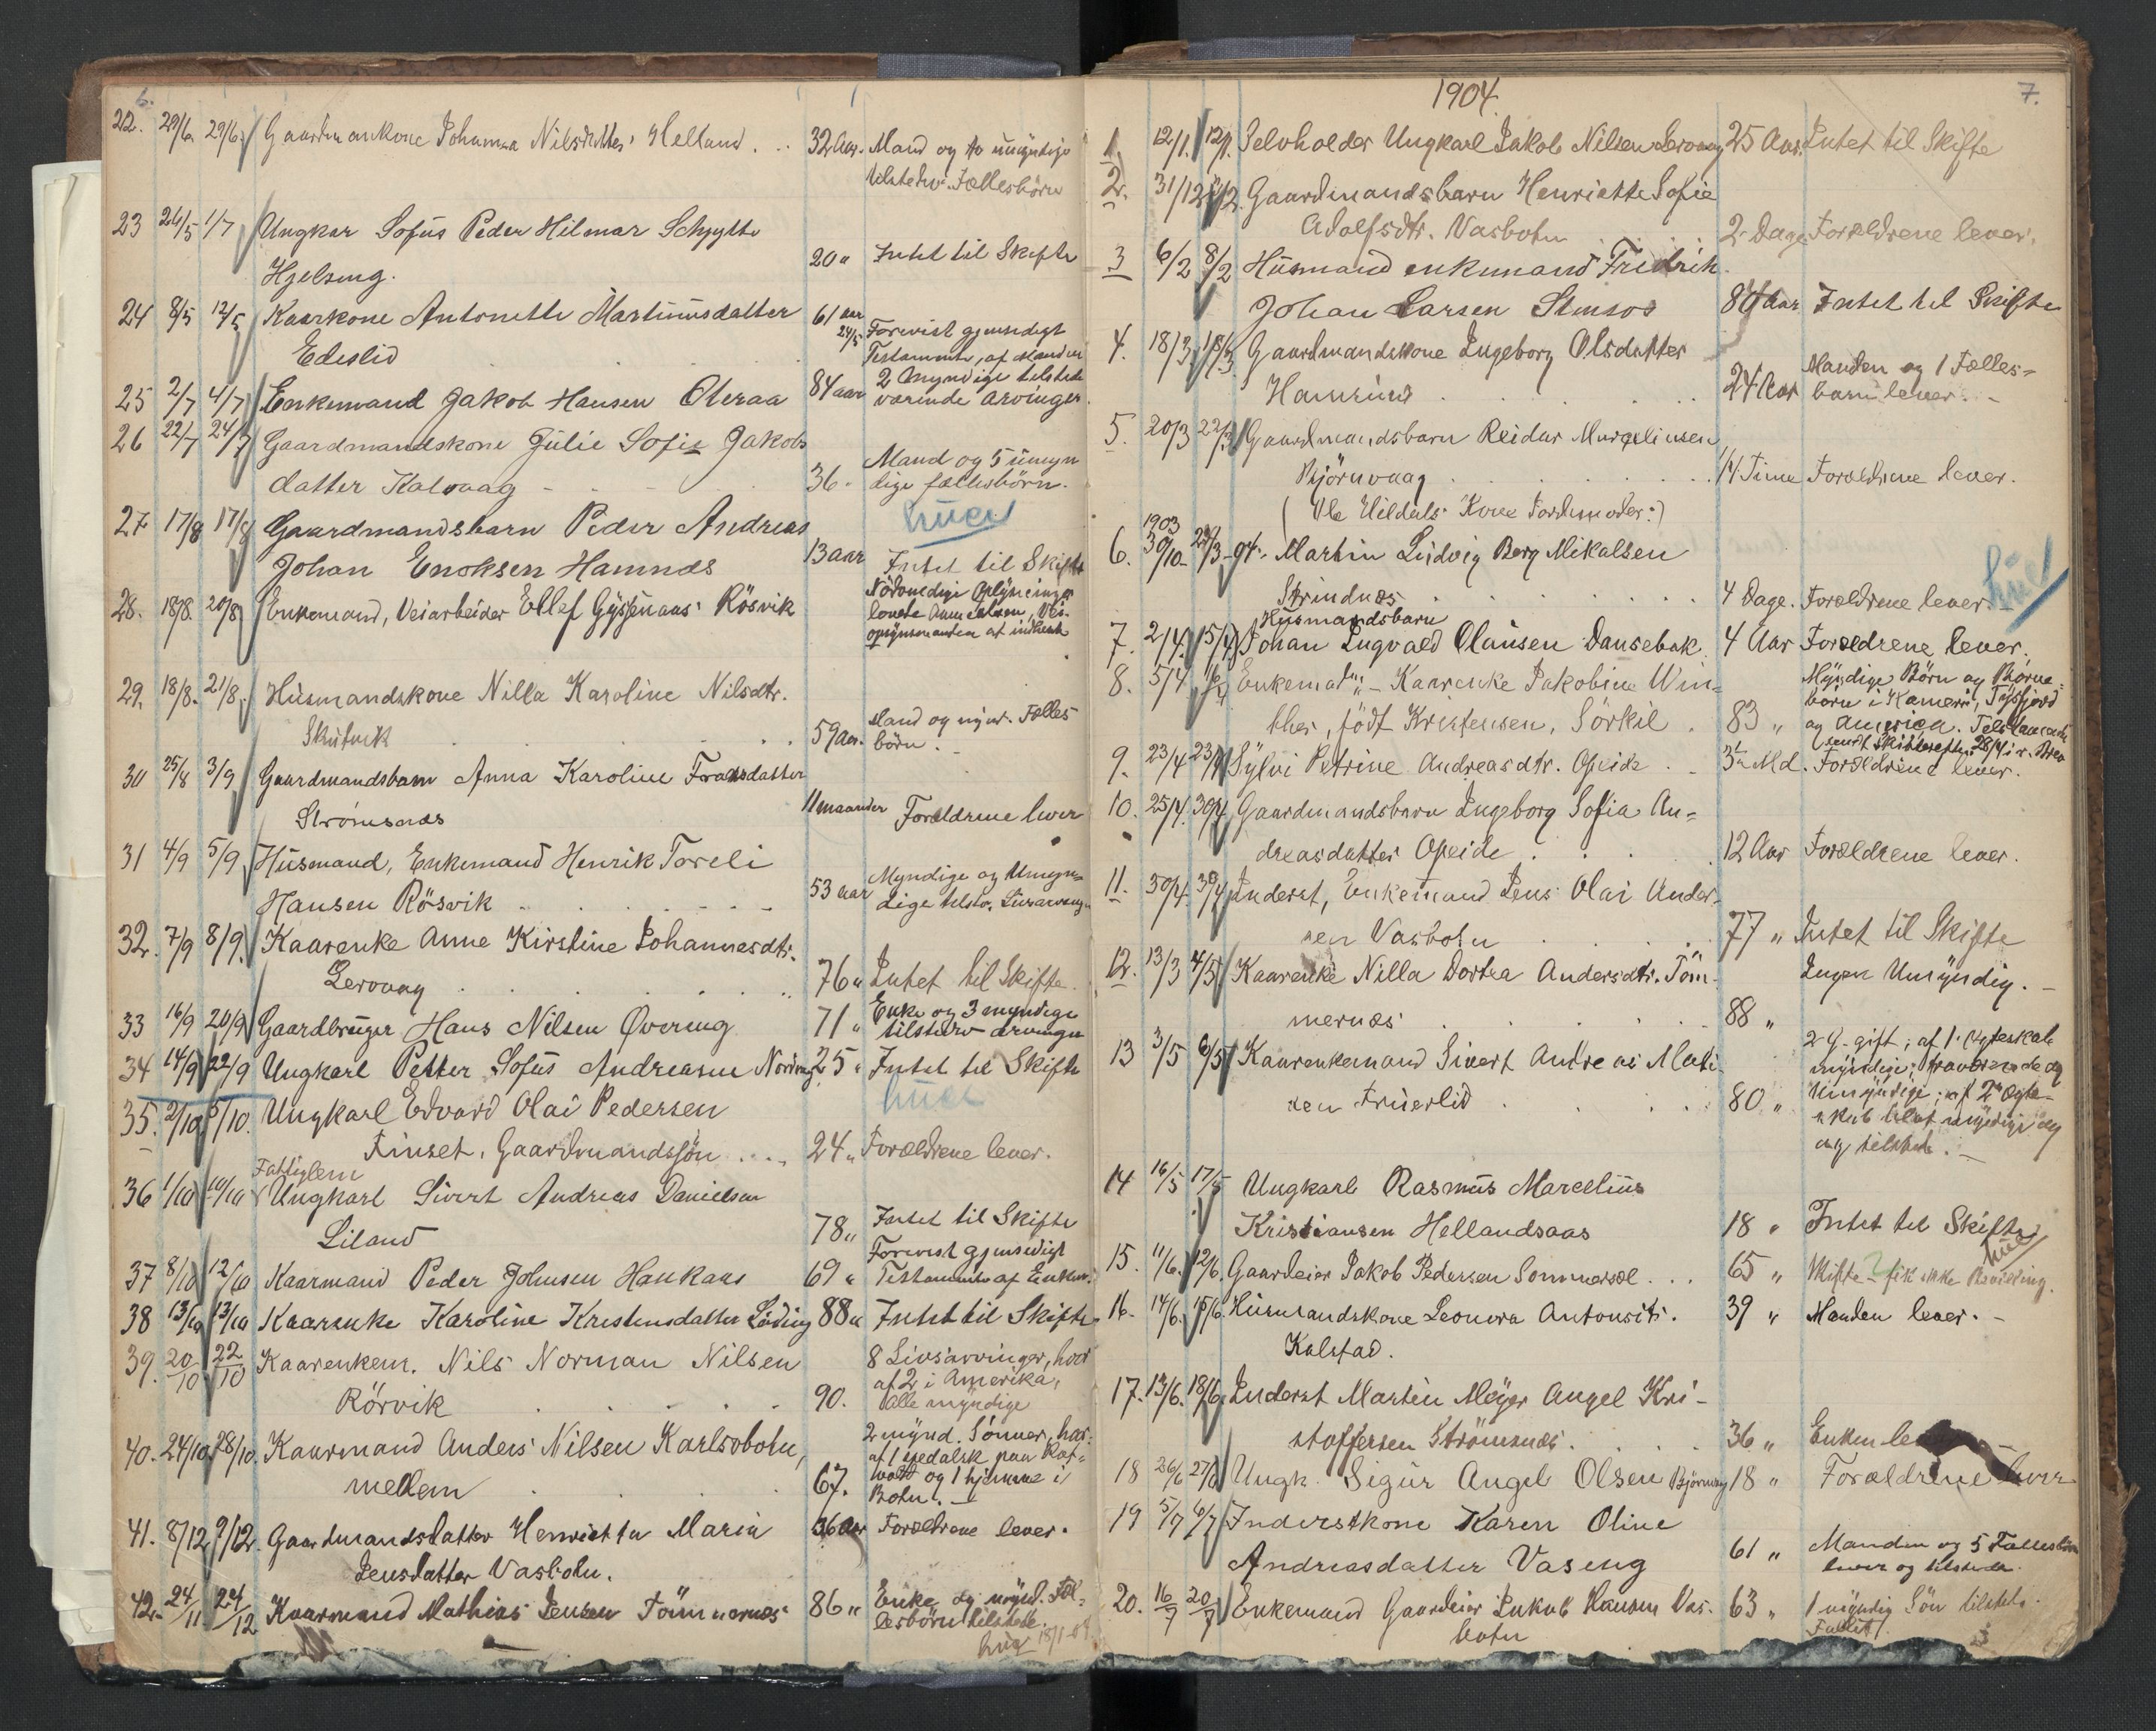 6.
22. 29/6. 29/6. Gaardmankone Johanna Nilsdatter Helland . . 32 Aar. Mand og to umyndige
tilstedv. Fællesbörn
23 26/5 1/7 Ungkar Sofus Peder Hilmar Schjytte
Hjelseng. 20 " Intet til Skifte
24 8/5 12/5 Kaarkone Antonette Martinusdatter 61 aar
Edeslid 24/5 Forevist gjensidigt
Testamente, af manden
25 2/7 4/7 Enkemand Jakob Hansen Oteraa 84 aar 2 myndige tilstede
værende arvinger.
26 22/7 24/7 Gaardmandskone Julie Sofie Jakobs
datter Kalvaag - 36 " Mand og 5 umyn
dige fællesbörn.
27 17/8 17/8 Gaardmandsbarn Peder Andreas
Johan Enoksen Hamnæs 13 aar Intet til Skifte
28. 18/8. 20/8 Enkemand, Veiarbeider Ellef Rösvik Nödvendige Oplysninger
lovede
opsynsmanden at indhente
29. 18/8. 21/8. Husmandskone Nilla Karoline Nilsdtr.
Skutvik 59 Aar. Mand og mynd. Fælles
börn. -
30 25/8 3/9 Gaardmandsbarn Anna Karoline Fransdatter
Strömsnæs 11 maaneder Forældrene lever
31 4/9 5/9 Husmand, Enkemand Henrik Toreli
Hansen Rösvik 53 aar Myndige og Umyn=
dige tilstv. Livsarving.
32. 7/9 8/9. Kaarenke Anne Kirstine Johannesdtr.
Lervaag 76 " Intet til Skifte.
33 16/9 20/9 Gaardbruger Hans Nilsen Qværing 71 " Enke og 3 myndige
tilstedv. arvinger
34 14/9 22/9 Ungkarl Petter Sofus Andreasen 25 " Intet til Skifte
35. 2/10 5/10. Ungkarl Edvard Olai Pedersen
Finset, Gaardmandssön . . . 24 " Forældrene lever.
Fattiglem
36 1/10 10/10 Ungkarl Sivert Andreas Danielsen
Liland 78 " Intet til Skifte
37 8/10 12/10 Kaarmand Peder Johnsen Haukaas 69 " Forevist gjensidigt
Testamente af Enken.
38 13/10 13/10 Kaarenke Karoline Kristensdatter Löding 88 " Intet til Skifte
39. 20/10 22/10 Kaarenkem. Nils Norman Nilsen
Rörvik 90. 8 Livsarvinger, hvor
af 2 i Amerika,
Alle myndige
40. 24/10. 28/10. Kaarmand Anders Nilsen Karlsobotn,
mellem 67. 2 mynd. Sönner, hvor=
af 1 paa
og 1 hjemme i
Botn. -
41. 8/12. 9/12. Gaardmandsdatter Henriette Maria
Jensdatter Vasbotn. 36 Aar Forældrene lever.
42. 24/11 24/12 Kaarmand Mathias Jensen Tömmernæs 86 " Enke og mynd. Fæl=
lesbörn tilstede.
18/1-04
7.
1904.
1. 12/1. 12/1. Selvholder Ungkarl Jakob Nilsen Lervaag 25 Aar. Intet til Skifte
2. 31/12 Gaardmandsbarn Henriette Sofie
Adolfsdtr. Vasbotn 2 Dage Forældrene lever.
3 6/2 8/2 Husmand enkemand Fredrik
Johan Larsen Stensos 84 Aar Intet til Skifte
4. 18/3. 18/3. Gaardmandskone Ingeborg Olsdatter
Hamrund 24 Aar Manden og 1 Fælles=
barn lever. -
5. 20/3 22/3 Gaardmandsbarn Reidar Margelinsen
Björnvaag 1/4 Time Forældrene lever.
(Ole Hildals Kone Jordemoder:)
1903
6. 30/10- 22/3-94. Martin Ludvig Berg Mikalsen
Strindnæs 4 Dage. Forældrene lever.
Husmandsbarn
7. 2/4. 15/4 Johan Ingvald Olausen Dansebak 4 Aar Forældrene lever.
8. 5/4 Kaarenke Jakobine Win=
ther, födt Kristensen, Sörkil 83 " Myndige Börn og Börne=
börn i Hamerö, Tysfjord
og America.
9. 23/4 23/4 Sylvi Petrine Andreasdtr. Opeide 3½ Md. Forældrene lever.
10. 25/4. 30/4 Gaardmandsbarn Ingeborg Sofia An=
dreasdatter Opeide 12 Aar Forældrene lever.
11. 30/4. 30/4 Inderst, Enkemand Jens Olai Ander=
sen Vasbotn 77 " Intet til Skifte
12. 13/3 4/5 Kaarenke Nilla Dortea Andersdtr. Töm-
mernæs 88 " Ingen Umyndig. -
13 3/5 6/5 Kaarenkemand Sivert Andreas Mati-
sen Fruerlid 80 " 2 G. gift; af 1. Ægteskab
myndige; fraværende og
Umyndige; af 2 Ægte-
skab blot myndige og
tilstede. -
14 16/5 17/5 Ungkarl Rasmus Marcelius
Kristiansen Hellandsaas 18 " Intet til Skifte
15. 11/6. 12/6. Gaardeier Jakob Pedersen Sommersel . . . 65 " Skifte - fik ikke Bevilling.
16. 14/6. 15/6. Husmandskone Leonora Antonsdtr.
Kalstad. 39 " Manden lever. -
17. 13/6. 18/6. Inderst Martin Meyer Angel Kri-
stoffersen Strömsnæs. 36 " Enken
18 26/6 27/6 Ungk. Sigur Angel Olsen Björnvag 18 " Forældrene lever
19 5/7 6/7 Inderstkone Karen Oline
Andreasdatter Vaseng 61 " Manden og 5 Fællesbörn
lever og tilstede.
20. 16/7 20/7 Enkemand Gaardeier Jakob Hansen Vas-
botn 63 " 1 myndig Sön tilstede.